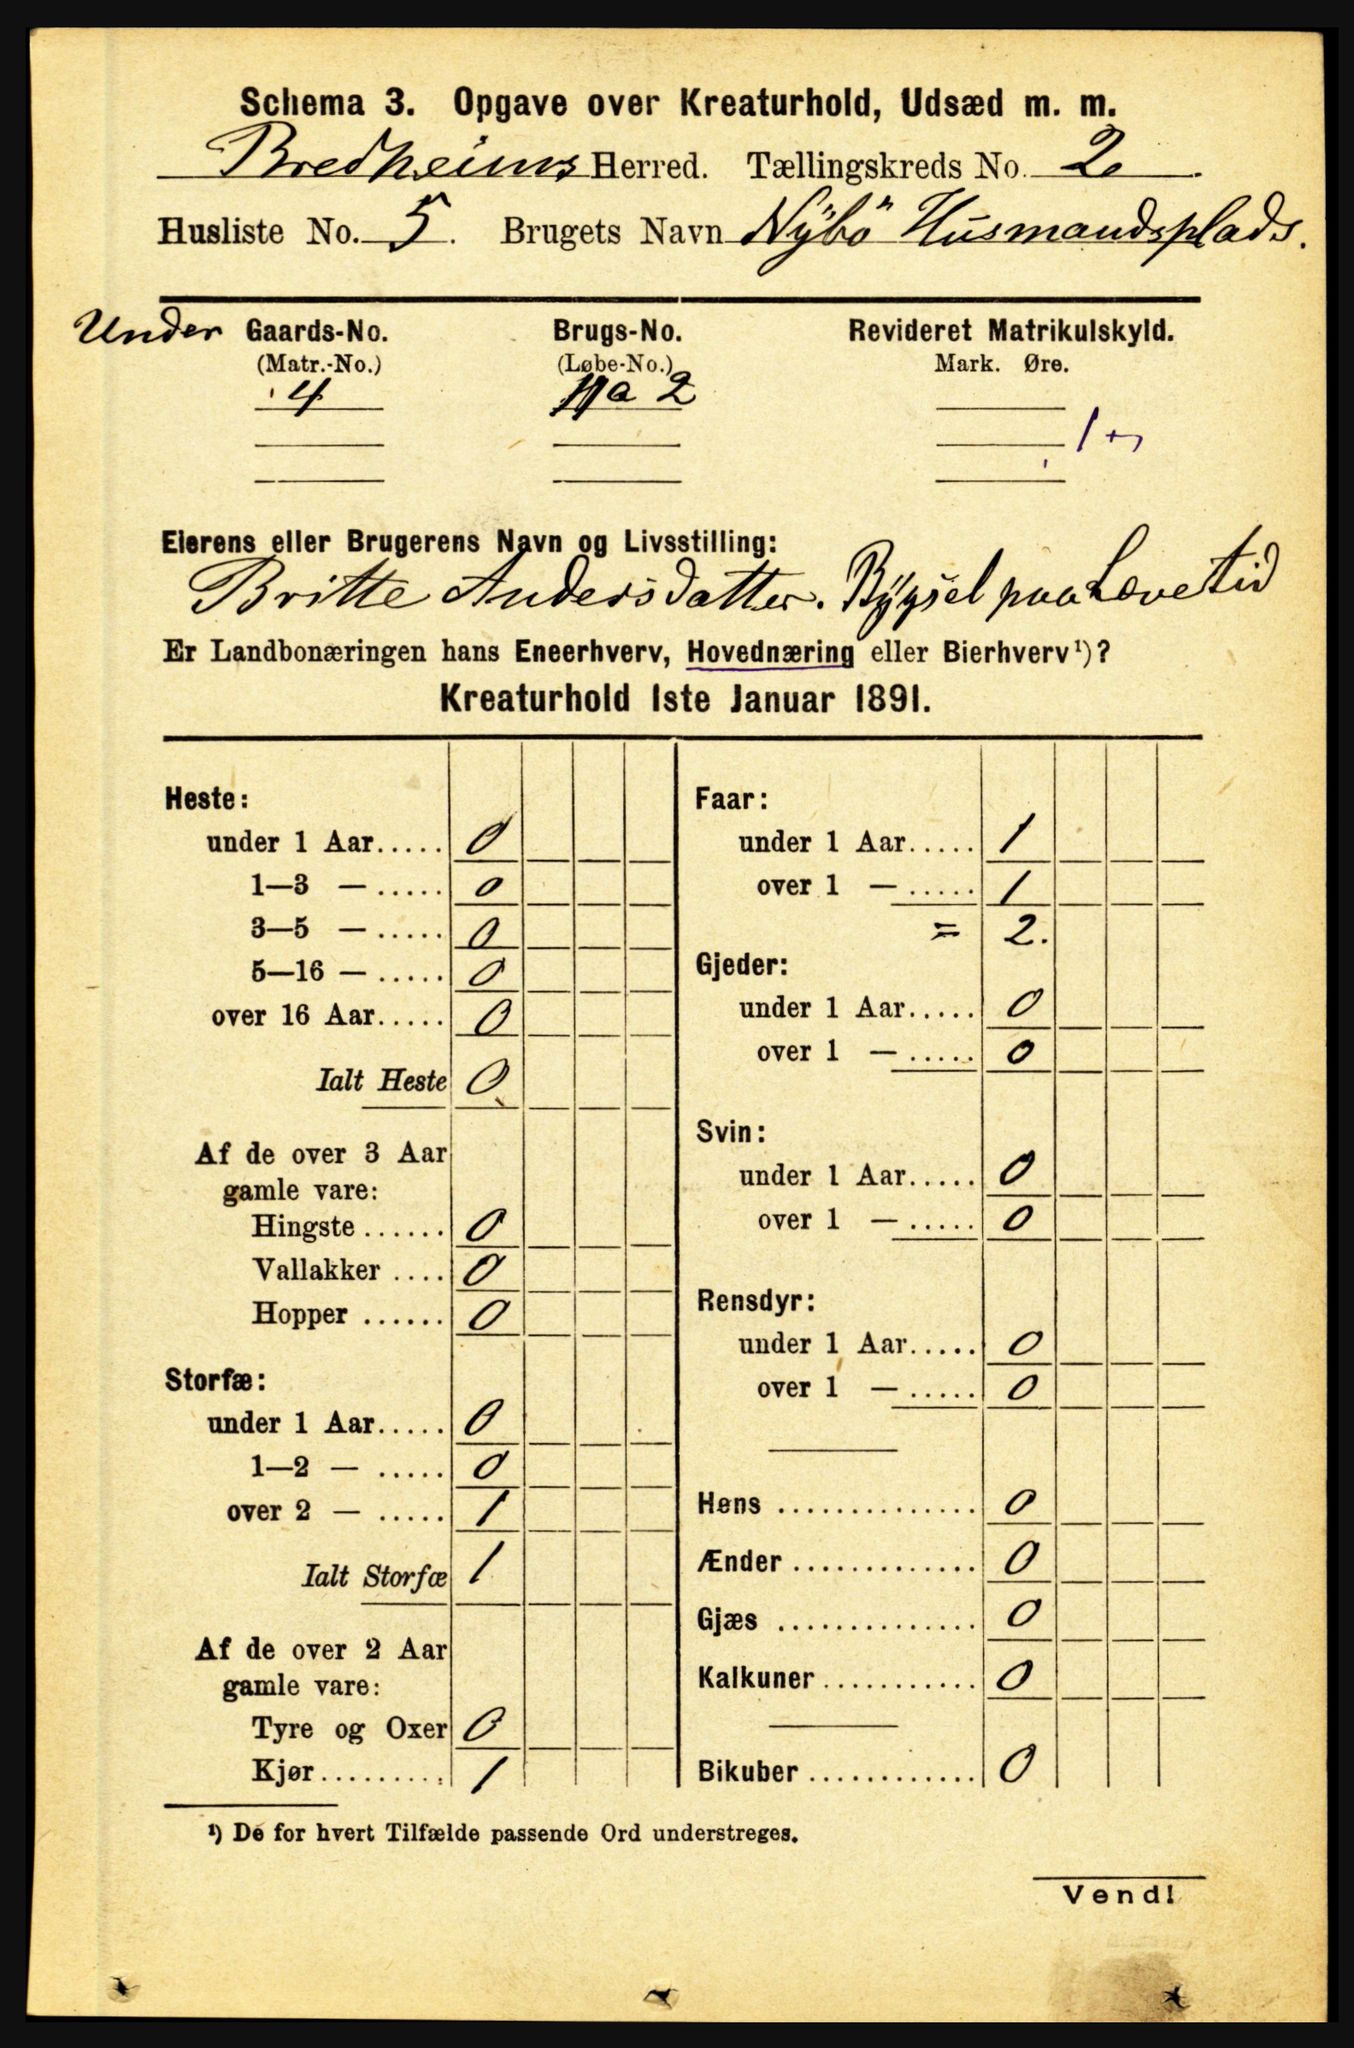 Schema 3. Opgave over Kreaturhold, Udsæd m. m.
Bredheims Herred. Tællingskreds No. 2.
Husliste No. 5. Brugets Navn Nÿbö Husmandsplads.
Under Gaards-No. Brugs-No. Revideret Matrikulskyld.
(Matr.-No.) (Løbe-No.) Mark. Øre.
4 a 2
1
Eierens eller Brugerens Navn og Livsstilling:
Britte Andersdatter. Bÿgsel paa Levetid
Er Landbonæringen hans Eneerhverv, Hovednæring eller Bierhverv¹)?
Kreaturhold 1ste Januar 1891.
Heste:
under 1 Aar..... 0
1—3 — ..... 0
3—5 — ..... 0
5—16 — ..... 0
over 16 Aar..... 0
Ialt Heste 0
Af de over 3 Aar
gamle vare:
Hingste ...... 0
Vallakker .... 0
Hopper ...... 0
Storfæ:
under 1 Aar..... 0
1—2 — ..... 0
over 2 — ..... 1
Ialt Storfæ 1
Af de over 2 Aar
gamle vare:
Tyre og Oxer 0
Kjør.......... 1
Faar:
under 1 Aar..... 1
over 1 — ..... 1
= 2.
Gjeder:
under 1 Aar..... 0
over 1 — ..... 0
Svin:
under 1 Aar..... 0
over 1 — ..... 0
Rensdyr:
under 1 Aar..... 0
over 1 — ..... 0
Høns ............... 0
Ænder .............. 0
Gjæs ............... 0
Kalkuner ............ 0
Bikuber ............. 0
¹) De for hvert Tilfælde passende Ord understreges.
Vend!